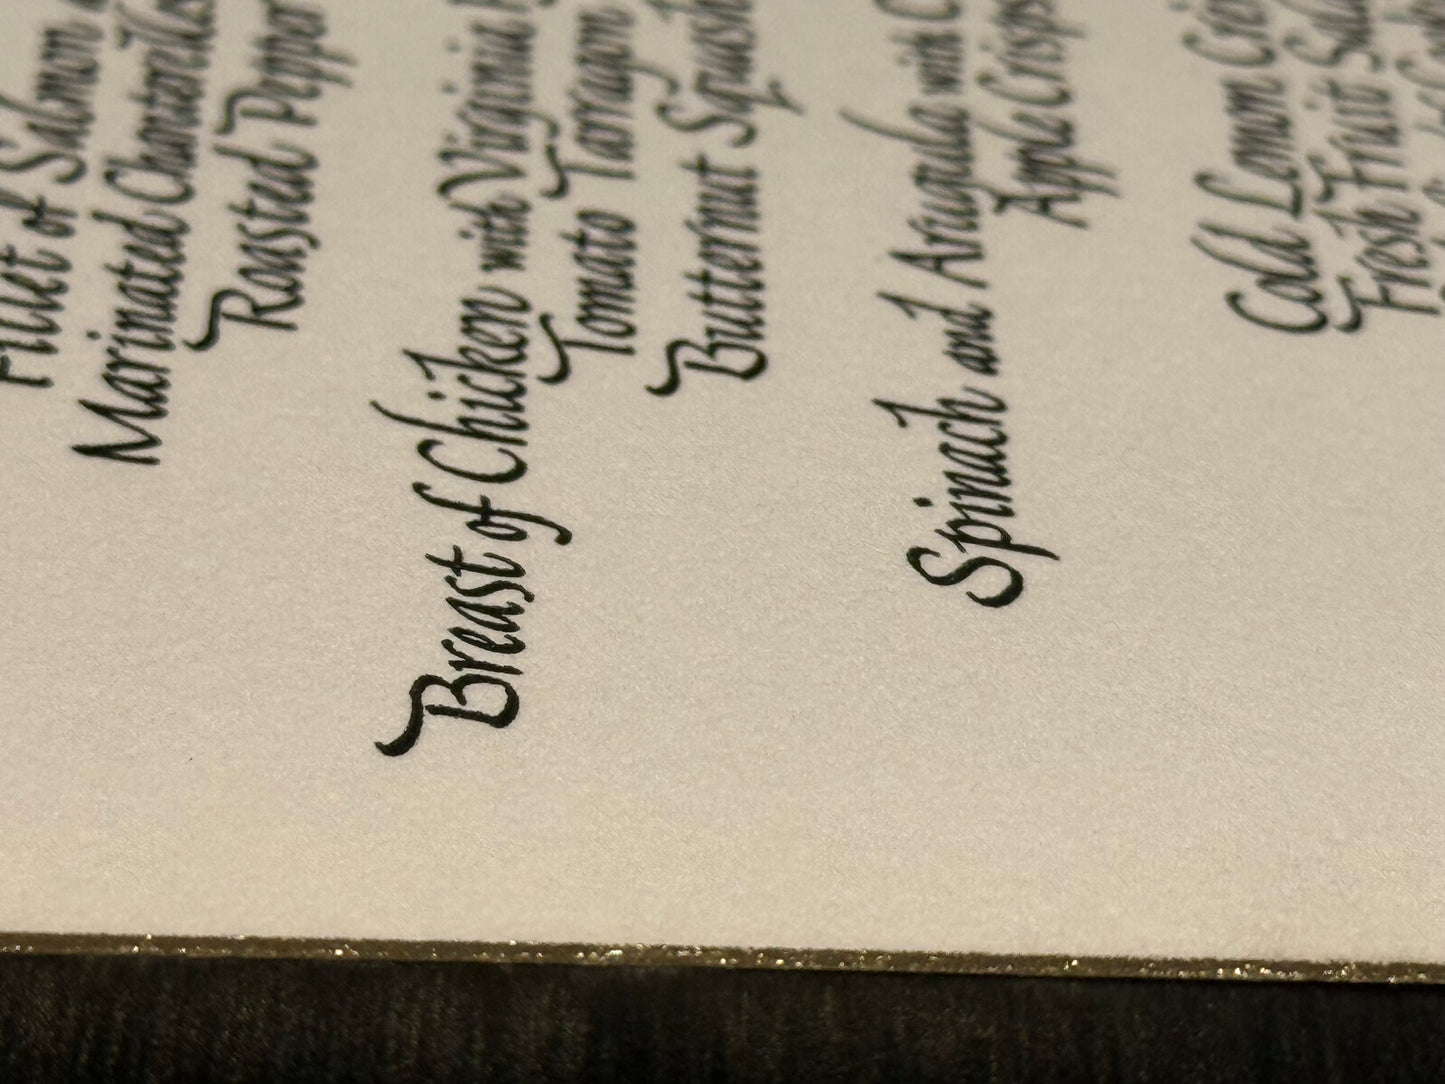 Fillet of Salmon
Marinated Chanterelles
Roasted Pepper
Breast of Chicken with Virginia
Tomato Tarragon
Butternut Squash
Spinach and Arugula with
Apple Crisps
Cold Lemon
Fresh Fruit